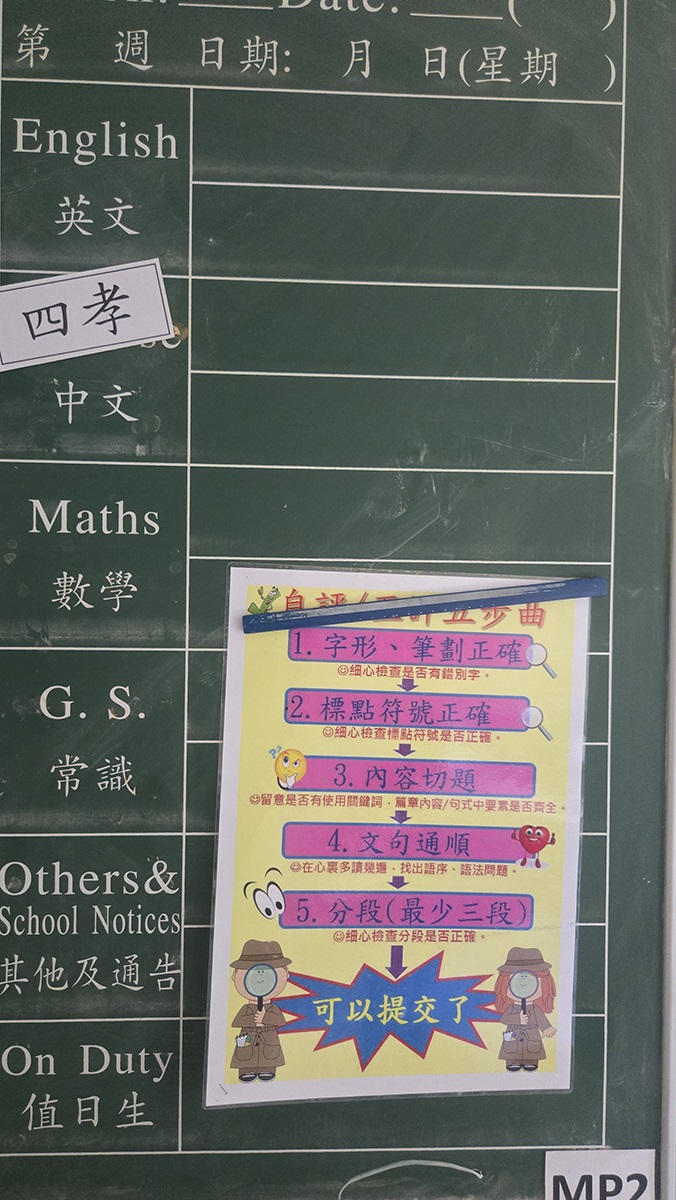 Date: ____ ( )
第 週 日期: 月 日(星期 )
English
英文
四孝
中文
Maths
數學
G. S.
常識
Others&
School Notices
其他及通告
On Duty
值日生
自評/互評五步曲
1. 字形、筆劃正確
☺細心檢查是否有錯別字。
2. 標點符號正確
☺細心檢查標點符號是否正確。
3. 內容切題
☺留意是否有使用關鍵詞，篇章內容/句式中要素是否齊全。
4. 文句通順
☺在心裏多讀幾遍，找出語序、語法問題。
5. 分段(最少三段)
☺細心檢查分段是否正確。
可以提交了
MP2